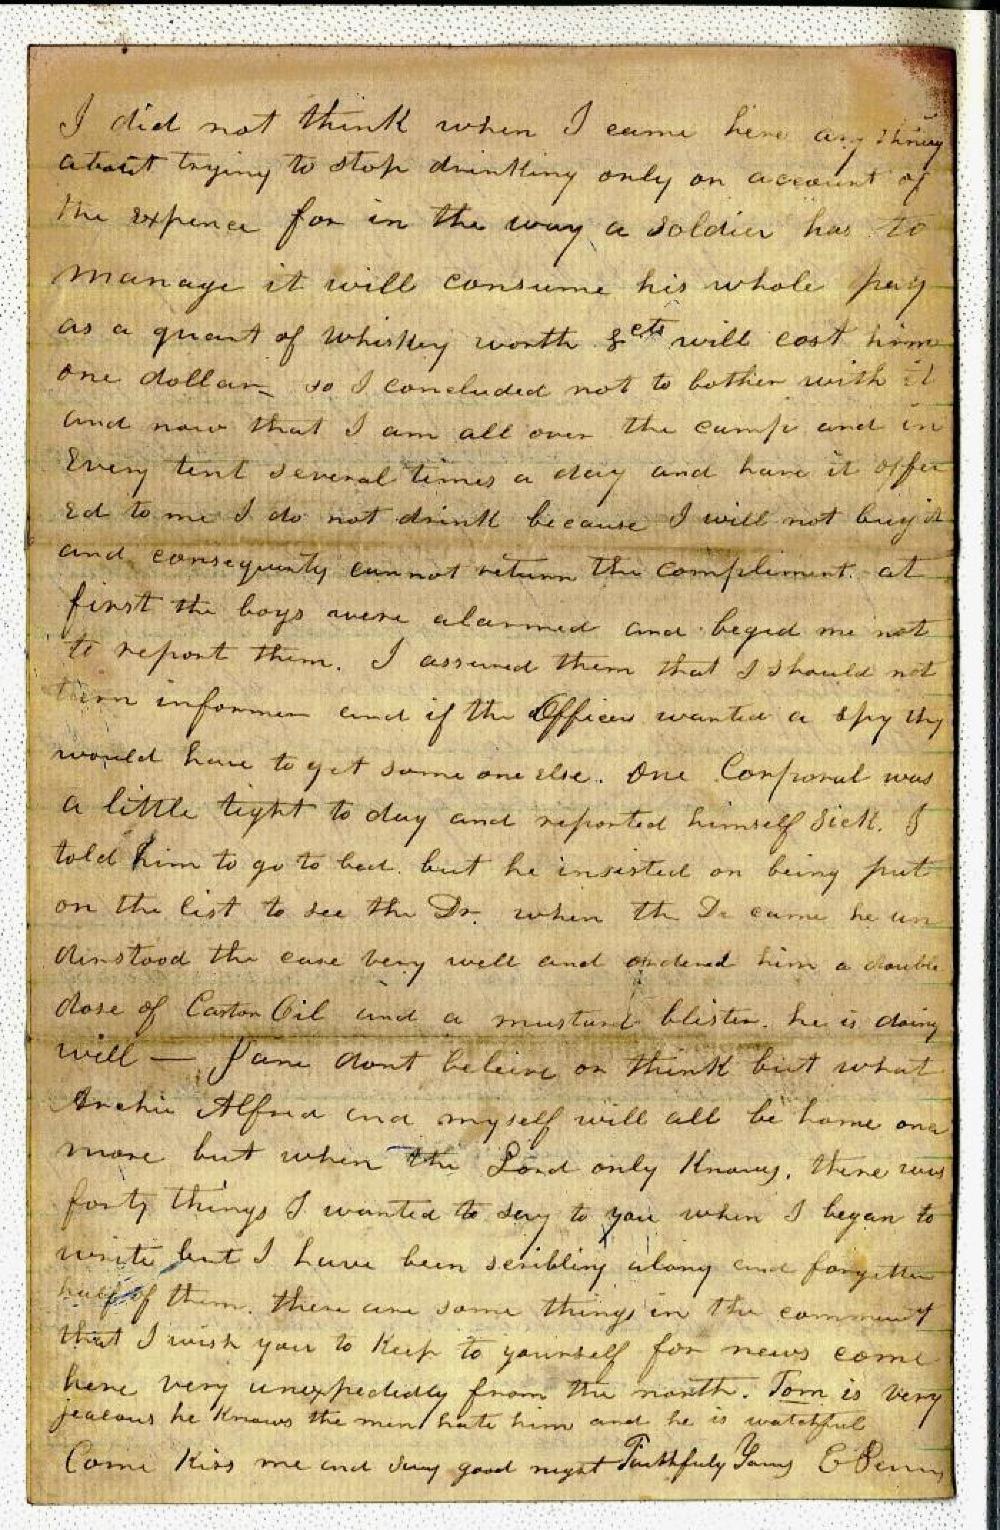 I did not think when I came here any thing
about trying to stop drinking only on account of
the expence for in the way a soldier has to
manage it will consume his whole pay
as a quart of whiskey worth 8cts will cost him
one dollar so I concluded not to bother with it
and now that I am all over the camp and in
Every tent several times a day and have it offer
ed to me I do not drink because I will not buy it
and consequently cannot return the compliment. at
first the boys were alarmed and beged me not
to report them. I assured them that I should not
turn informer and if the Officers wanted a spy they
would have to get some one else. One Corporal was
a little tight to day and reported himself sick. I
told him to go to bed. but he insisted on being put
on the list to see the Dr. when the Dr came he un
derstood the case very well and ordered him a double
dose of Castor Oil and a mustard blister. he is doing
well — Jane dont beleive or think but what
Archie Alfred and myself will all be home once
more but when the Lord only Knows. there was
forty things I wanted to say to you when I began to
write but I have been scribling along and forgotten
half of them. there are some things in the
that I wish you to Keep to yourself for news come
here very unexpectedly from the north. Tom is very
jealous he Knows the men hate him and he is watchful
Come Kiss me and say good night Faithfuly Yours E